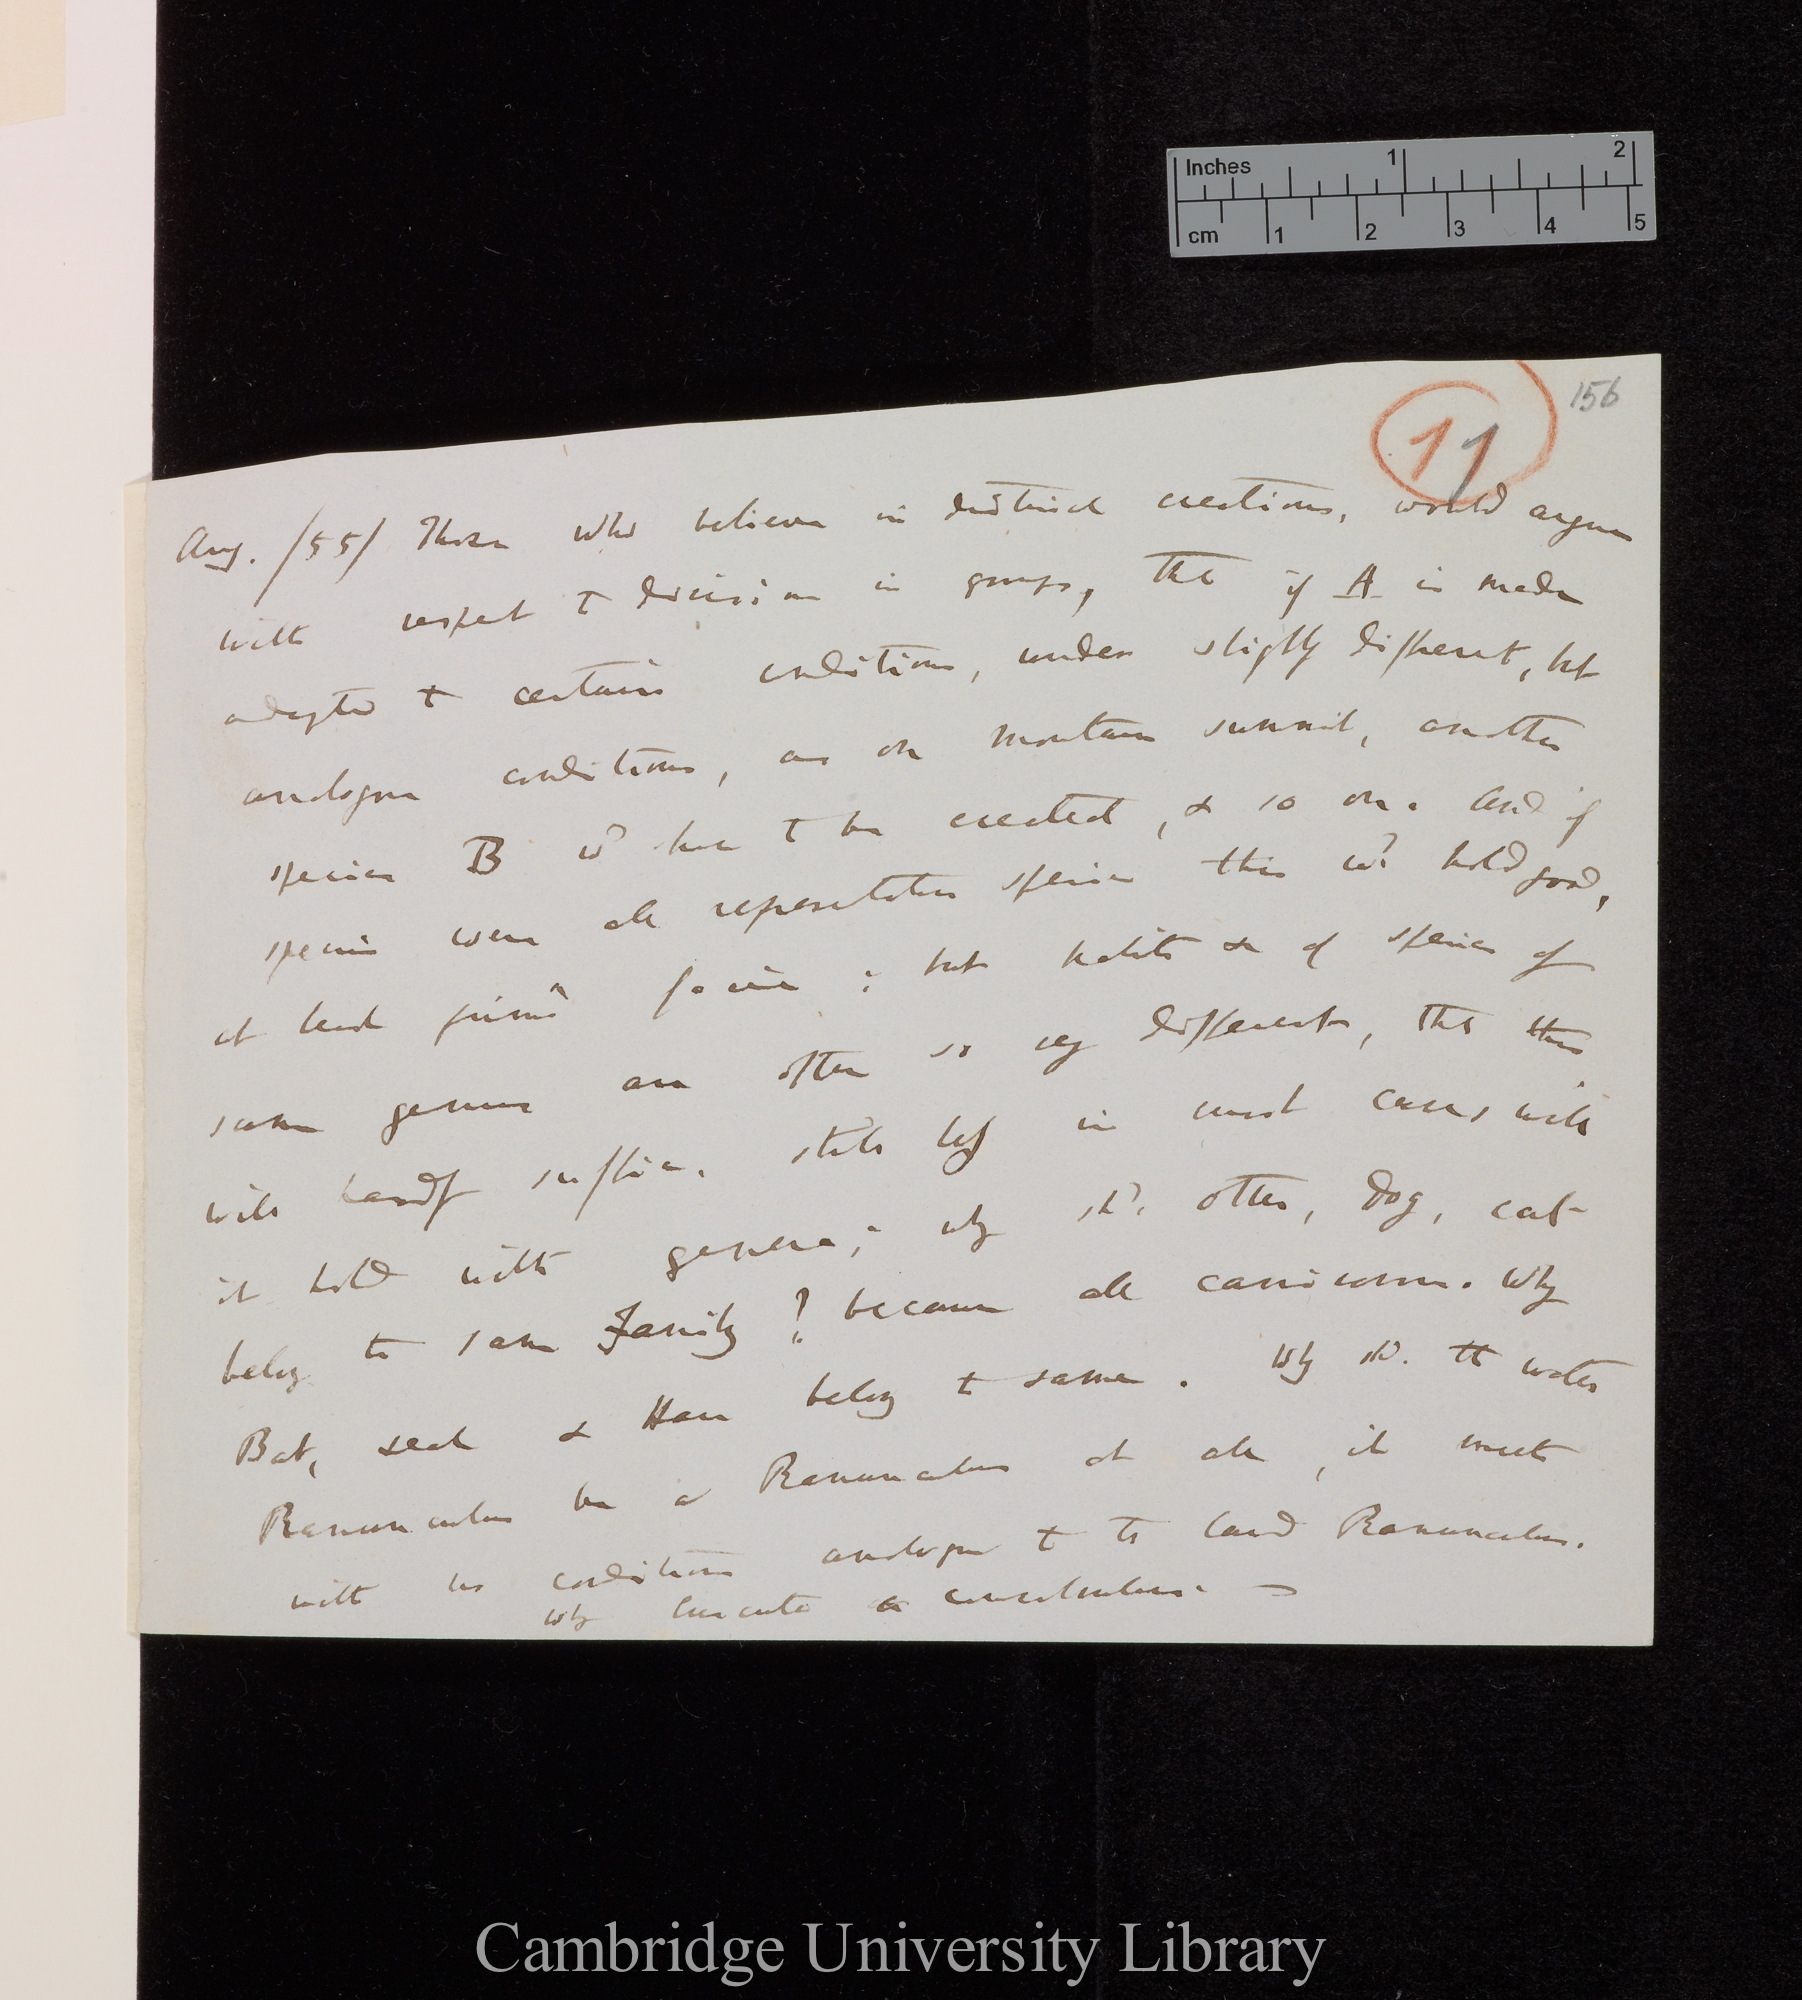 Inches 1 2
cm 1 2 3 4 5
156
11
Aug. /55/ Those who believe in distinct creations, would argue
with respect to division in groups, that if A is made
adapted to certain conditions, under slightly different, but
analogous conditions, as on mountain summit, another
species B wd have to be created, & so on. And if
species were all representative species this wd hold good,
at least primâ facie; but habits &c of species of
same genus are often so very different, that this
will hardly suffice. still less in most cases will
it hold with genera; why shd. otter, dog, cat
belong to same Family? because all carnivorous. Why
Bat, seal & Hare belong to same. Why shd. the water
Ranunculus be a Ranunculus at all, it meets
with no conditions analogous to the land Ranunculus.
why Cuscuta a convolvulus.
Cambridge University Library